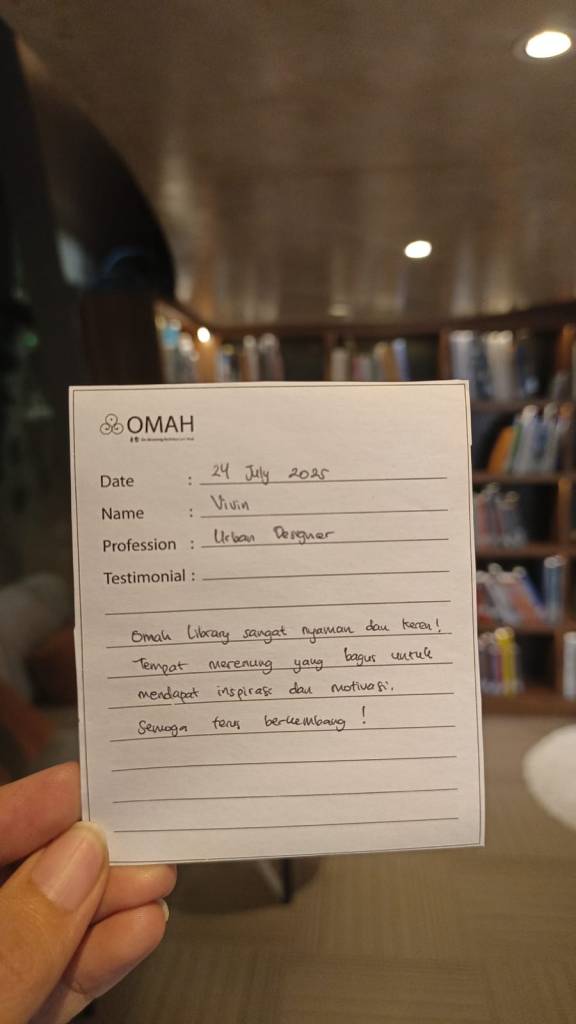 OMAH
Date : 24 July 2025
Name : Vivin
Profession : Urban Designer
Testimonial :
Omah Library sangat nyaman dan keren!
Tempat merenung yang bagus untuk
mendapat inspirasi dan motivasi.
Semoga terus berkembang!